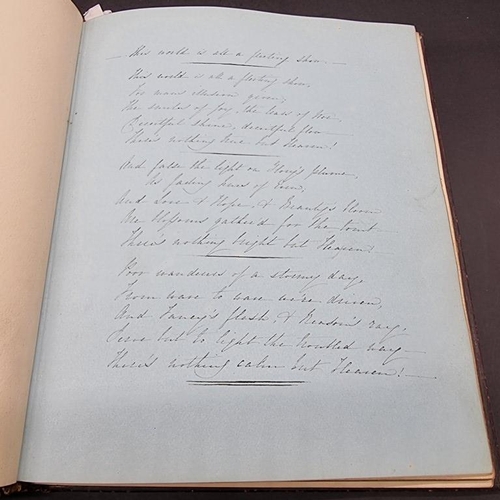 This world is all a fleeting show. —
This world is all a fleeting show,
For man's illusion given,
The smiles of Joy, the tears of Woe,
Deceitful shine, deceitful flow
There's nothing true but Heaven!
And false the light on Glory's plume,
As fading hues of Even,
And Love & Hope, & Beauty's bloom
Are blossoms gather'd for the tomb
There's nothing bright but Heaven!
Poor wanderers of a stormy day,
From wave to wave we're driven,
And Fancy's flash, & Reason's ray,
Serve but to light the troubled way—
There's nothing calm but Heaven! —